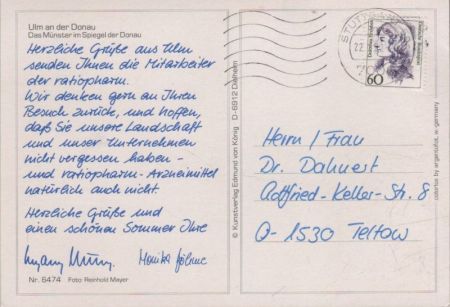 Ulm an der Donau
Das Münster im Spiegel der Donau
Herzliche Grüße aus Ulm
senden Ihnen die Mitarbeiter
der ratiopharm.
Wir denken gern an Ihren
Besuch zurück, und hoffen,
daß Sie unsere Landschaft
und unser Unternehmen
nicht vergessen haben -
und ratiopharm-Arzneimittel
natürlich auch nicht.
Herzliche Grüße und
einen schönen Sommer Ihre
Monika
Nr. 6474 Foto: Reinhold Mayer
© Kunstverlag Edmund von König D-6912 Dielheim
STUTTGART
22.
60
Herrn / Frau
Dr. Dahnert
Gottfried-Keller-Str. 8
O-1530 Teltow
w.-germany